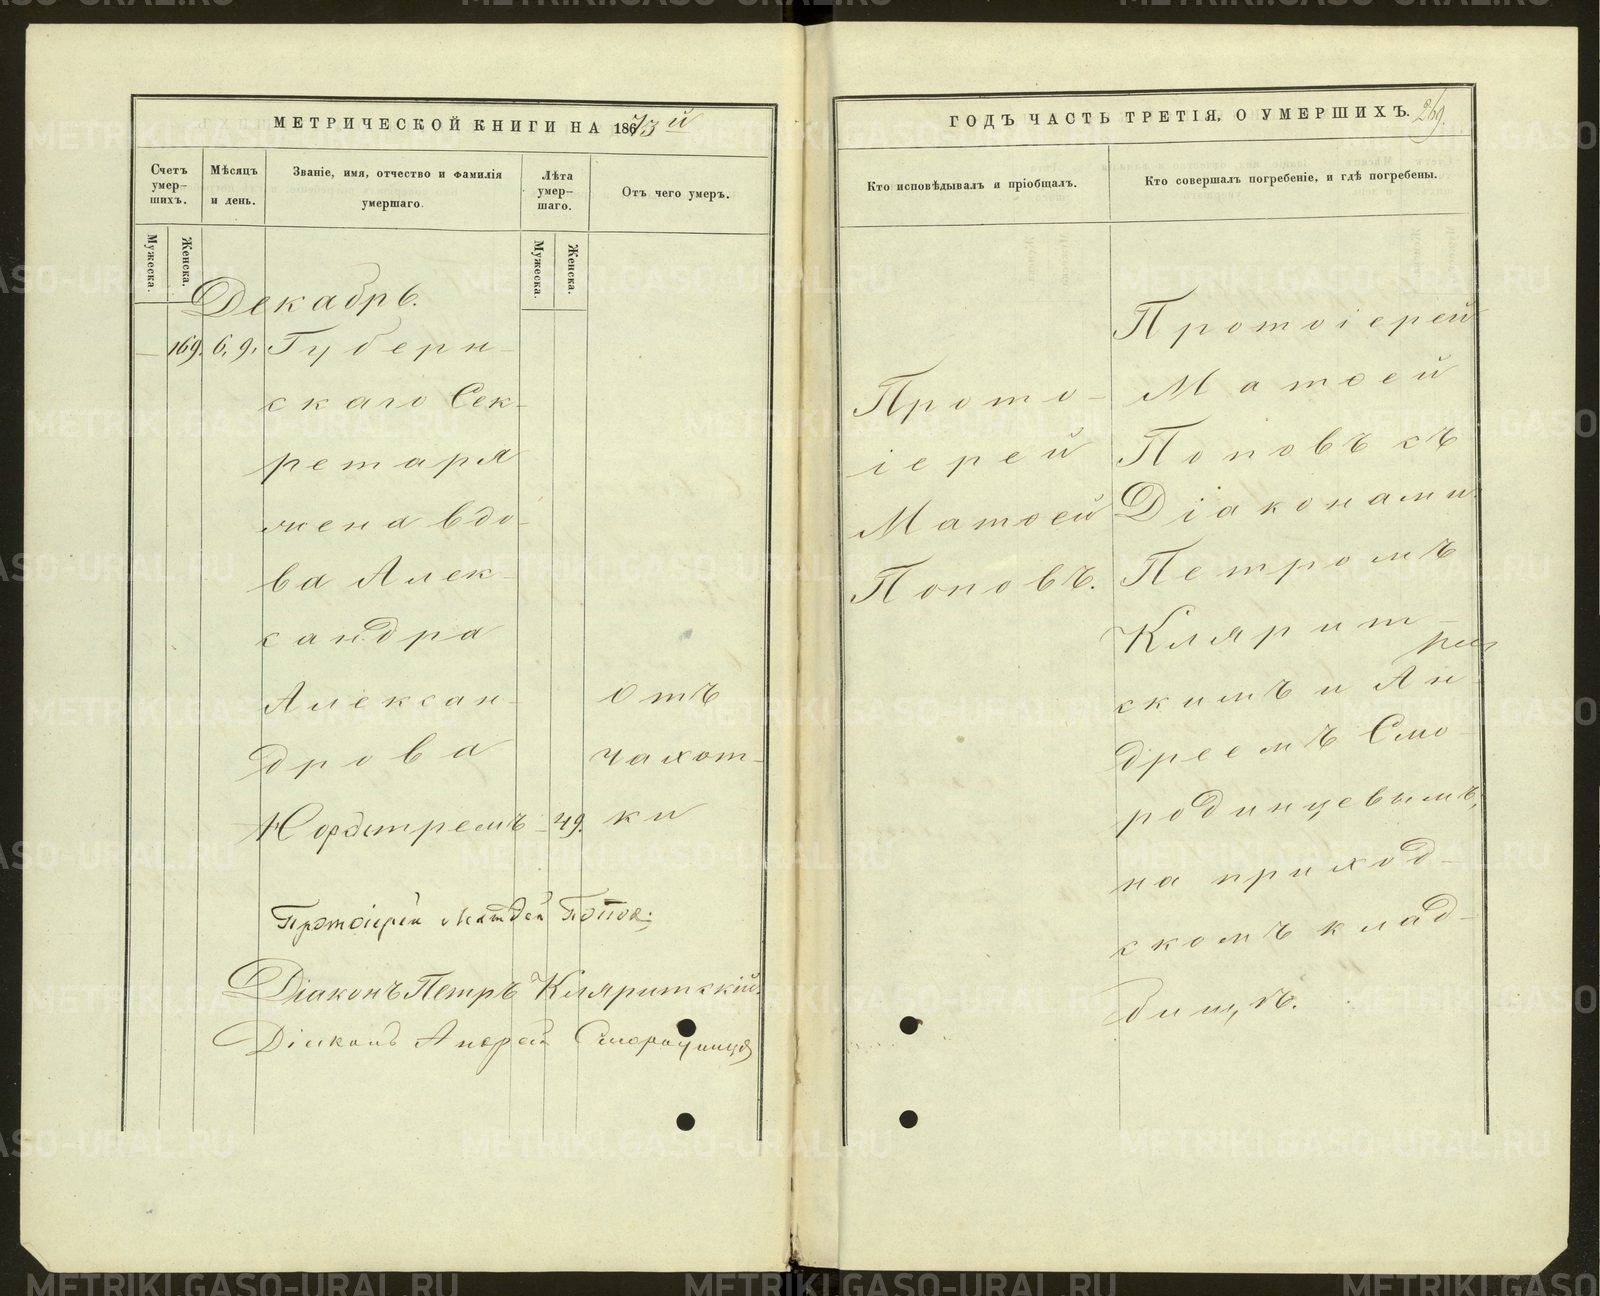 МЕТРИЧЕСКОЙ КНИГИ НА 1873й
Счетъ умер-шихъ.
Мѣсяцъ и день.
Званіе, имя, отчество и фамилія умершаго.
Лѣта умер-шаго.
Отъ чего умеръ.
Мужеска.
Женска.
Мужеска.
Женска.
Декабрь.
— 169. 6, 9. Губерн-
скаго Сек-
ретаря
жена вдо-
ва Алек-
сандра
Алексан-
дрова
Нордстремъ 49.
отъ
чахот-
ки
Протоіерей Матѳей Попов.
Діаконъ Петръ Кляритскій.
Діаконъ Андрей Смородинцев
ГОДЪ ЧАСТЬ ТРЕТІЯ, О УМЕРШИХЪ.
269.
Кто исповѣдывалъ и пріобщалъ.
Кто совершалъ погребеніе, и гдѣ погребены.
Прото-
іерей
Матѳей
Поповъ.
Протоіерей
Матѳей
Поповъ съ
Діаконами
Петромъ
Клярит-
скимъ и Ан-
дреемъ Смо-
родинцевымъ,
на приход-
скомъ клад-
бищѣ.
METRIKI.GASO-URAL.RU